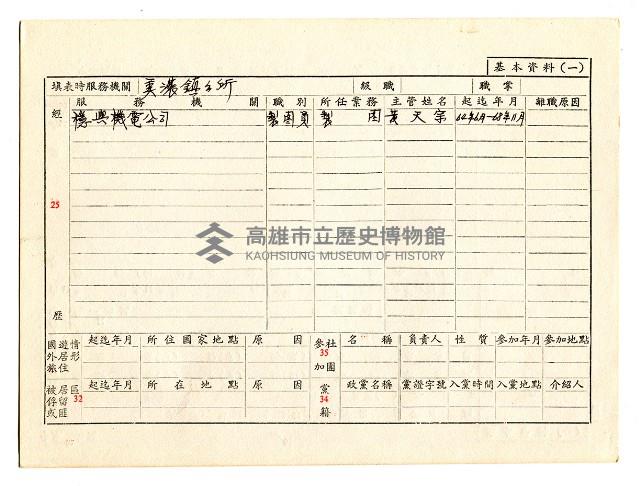 基本資料(一)
填表時服務機關 美濃鎮公所 級職 職業
經歷 25 服務機關 職別 所任業務 主管姓名 起迄年月 離職原因
穩興機電公司 製圖員 製圖 黃天宗 64年6月-68年11月
高雄市立歷史博物館
KAOHSIUNG MUSEUM OF HISTORY
國外旅遊居住情形 起迄年月 所住國家地點 原因 參加社團 35 名稱 負責人 性質 參加年月 參加地點
被俘或居留匪區 32 起迄年月 所在地點 原因 黨籍 34 政黨名稱 黨證字號 入黨時間 入黨地點 介紹人